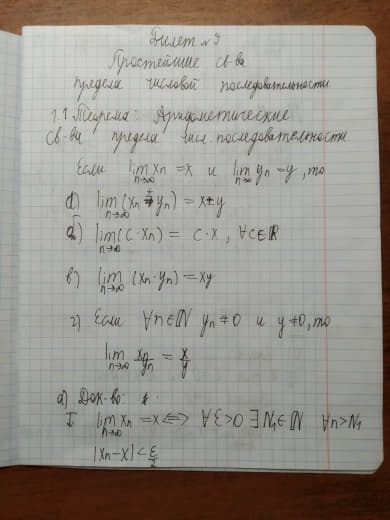 Билет №9
Простейшие св-ва
предела числовой последовательности.
1.1 Теорема: Арифметические
св-ва предела числ. последовательности
Если lim xn = x и lim yn = y, то
n→∞ n→∞
а) lim (xn ± yn) = x ± y
n→∞
б) lim (c · xn) = c · x, ∀c∈ℝ
n→∞
в) lim (xn · yn) = xy
n→∞
г) Если ∀n∈ℕ yn ≠ 0 и y ≠ 0, то
lim xn/yn = x/y
n→∞
а) Док-во:
I lim xn = x ⇔ ∀ε>0 ∃N1∈ℕ ∀n>N1
n→∞
|xn - x| < ε/2